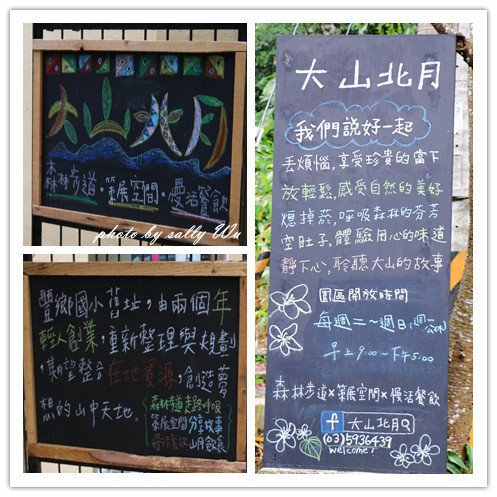 大山北月
森林步道.策展空間.慢活餐飲
photo by sally Wu
豐鄉國小舊址,由兩個年
輕人創業,重新整理與規劃
,期望整合在地資源,創造夢
想的山中天地。
森林步道走路呼吸
策展空間分享故事
慢活餐飲山月飲食
大山北月
我們說好一起
丟煩惱,享受珍貴的當下
放輕鬆,感受自然的美好
熄掉菸,呼吸森林的芬芳
空肚子,體驗用心的味道
靜下心,聆聽大山的故事
園區開放時間
每週二~週日(週一公休)
早上9:00~下午5:00
森林步道x策展空間x慢活餐飲
f 大山北月
(03)5936439
welcome!